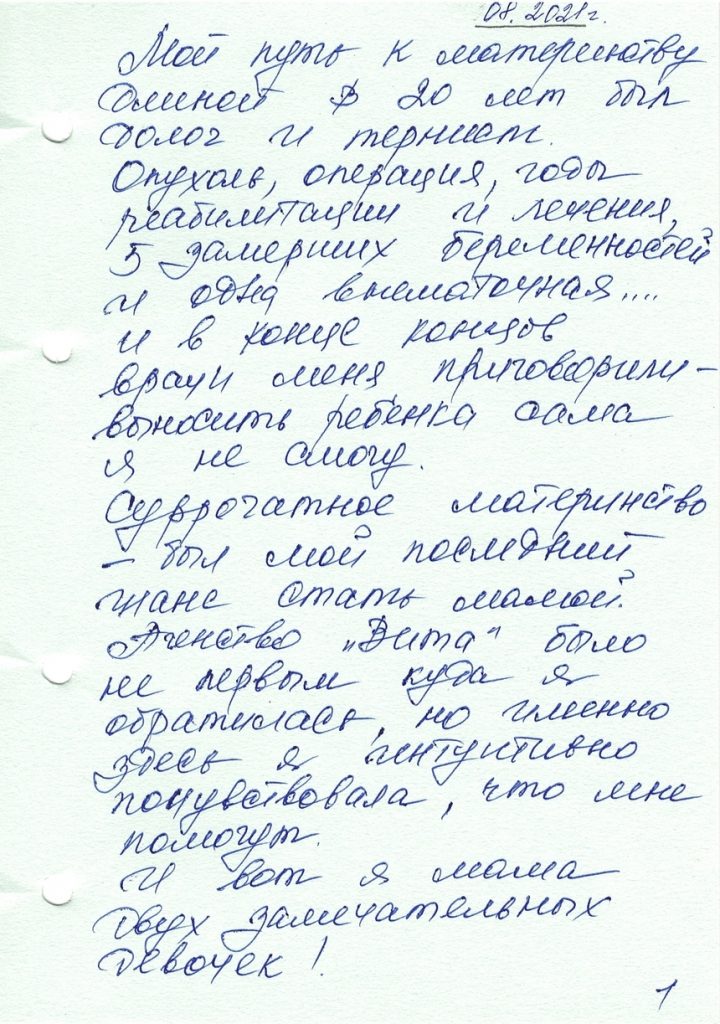 08.2021г.
Мой путь к материнству
длиной в 20 лет был
долог и тернист.
Опухоль, операция, годы
реабилитации и лечения,
5 замерших беременностей
и одна внематочная....
и в конце концов
врачи меня приговорили –
выносить ребёнка сама
я не смогу.
Суррогатное материнство
– был мой последний
шанс стать мамой.
Агенство "Вита" было
не первым куда я
обратилась, но именно
здесь я интуитивно
почувствовала, что мне
помогут.
И вот я мама
двух замечательных
девочек!
1